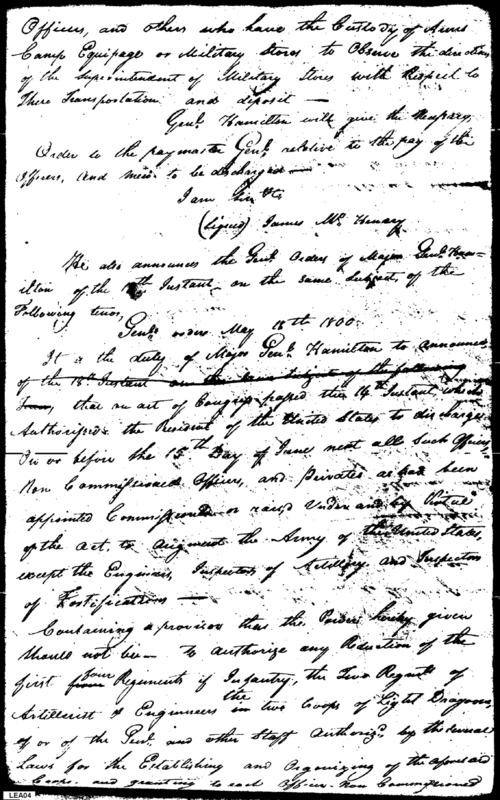 Officers, and others who have the Custody of Arms
Camp Equipage or Military Stores to Observe the direction
of the Superintendent of Military Stores with Respect to
There Transportation and deposit —
Genl. Hamilton will give the Necessary
Order to the paymaster Genl. relative to the pay of the
Officers, and men to be discharged —
I am Sir &c
(Signed) James Mc. Henry
He also announces the Genl. Orders of Major Genl. Ham-
ilton of the 18th Instant on the same Subject, of the
Following tenor,
Genl. orders May 18th 1800
It is the duty of Major Genl. Hamilton to announce
of the 18th Instant on the same subject of the following
tenor, that an act of Congress passed the 14th Instant, which
Authorises the President of the United States to discharge
On or before the 15th Day of June next all Such Officers,
Non Commissioned Officers, and Privates as had been
appointed Commissioned or rais'd Under and by Virtue
of the Act, to Augment the Army of the United States,
except the Engineers, Inspectors of Artillery and Inspectors
of Fortifications —
Containing a provision that the Powers hereby given
Should not be — to Authorize any Reduction of the
first four Regiments of Infantry, the Two Regmts. of
Artillerist & Engineers the in two Troops of Light Dragoons,
of or of the Genl. and other Staff Authoriz'd by the several
Laws for the Establishing and Organizing of the aforesaid
Corps. and granting to each Officer. Non Commissioned
LEA04